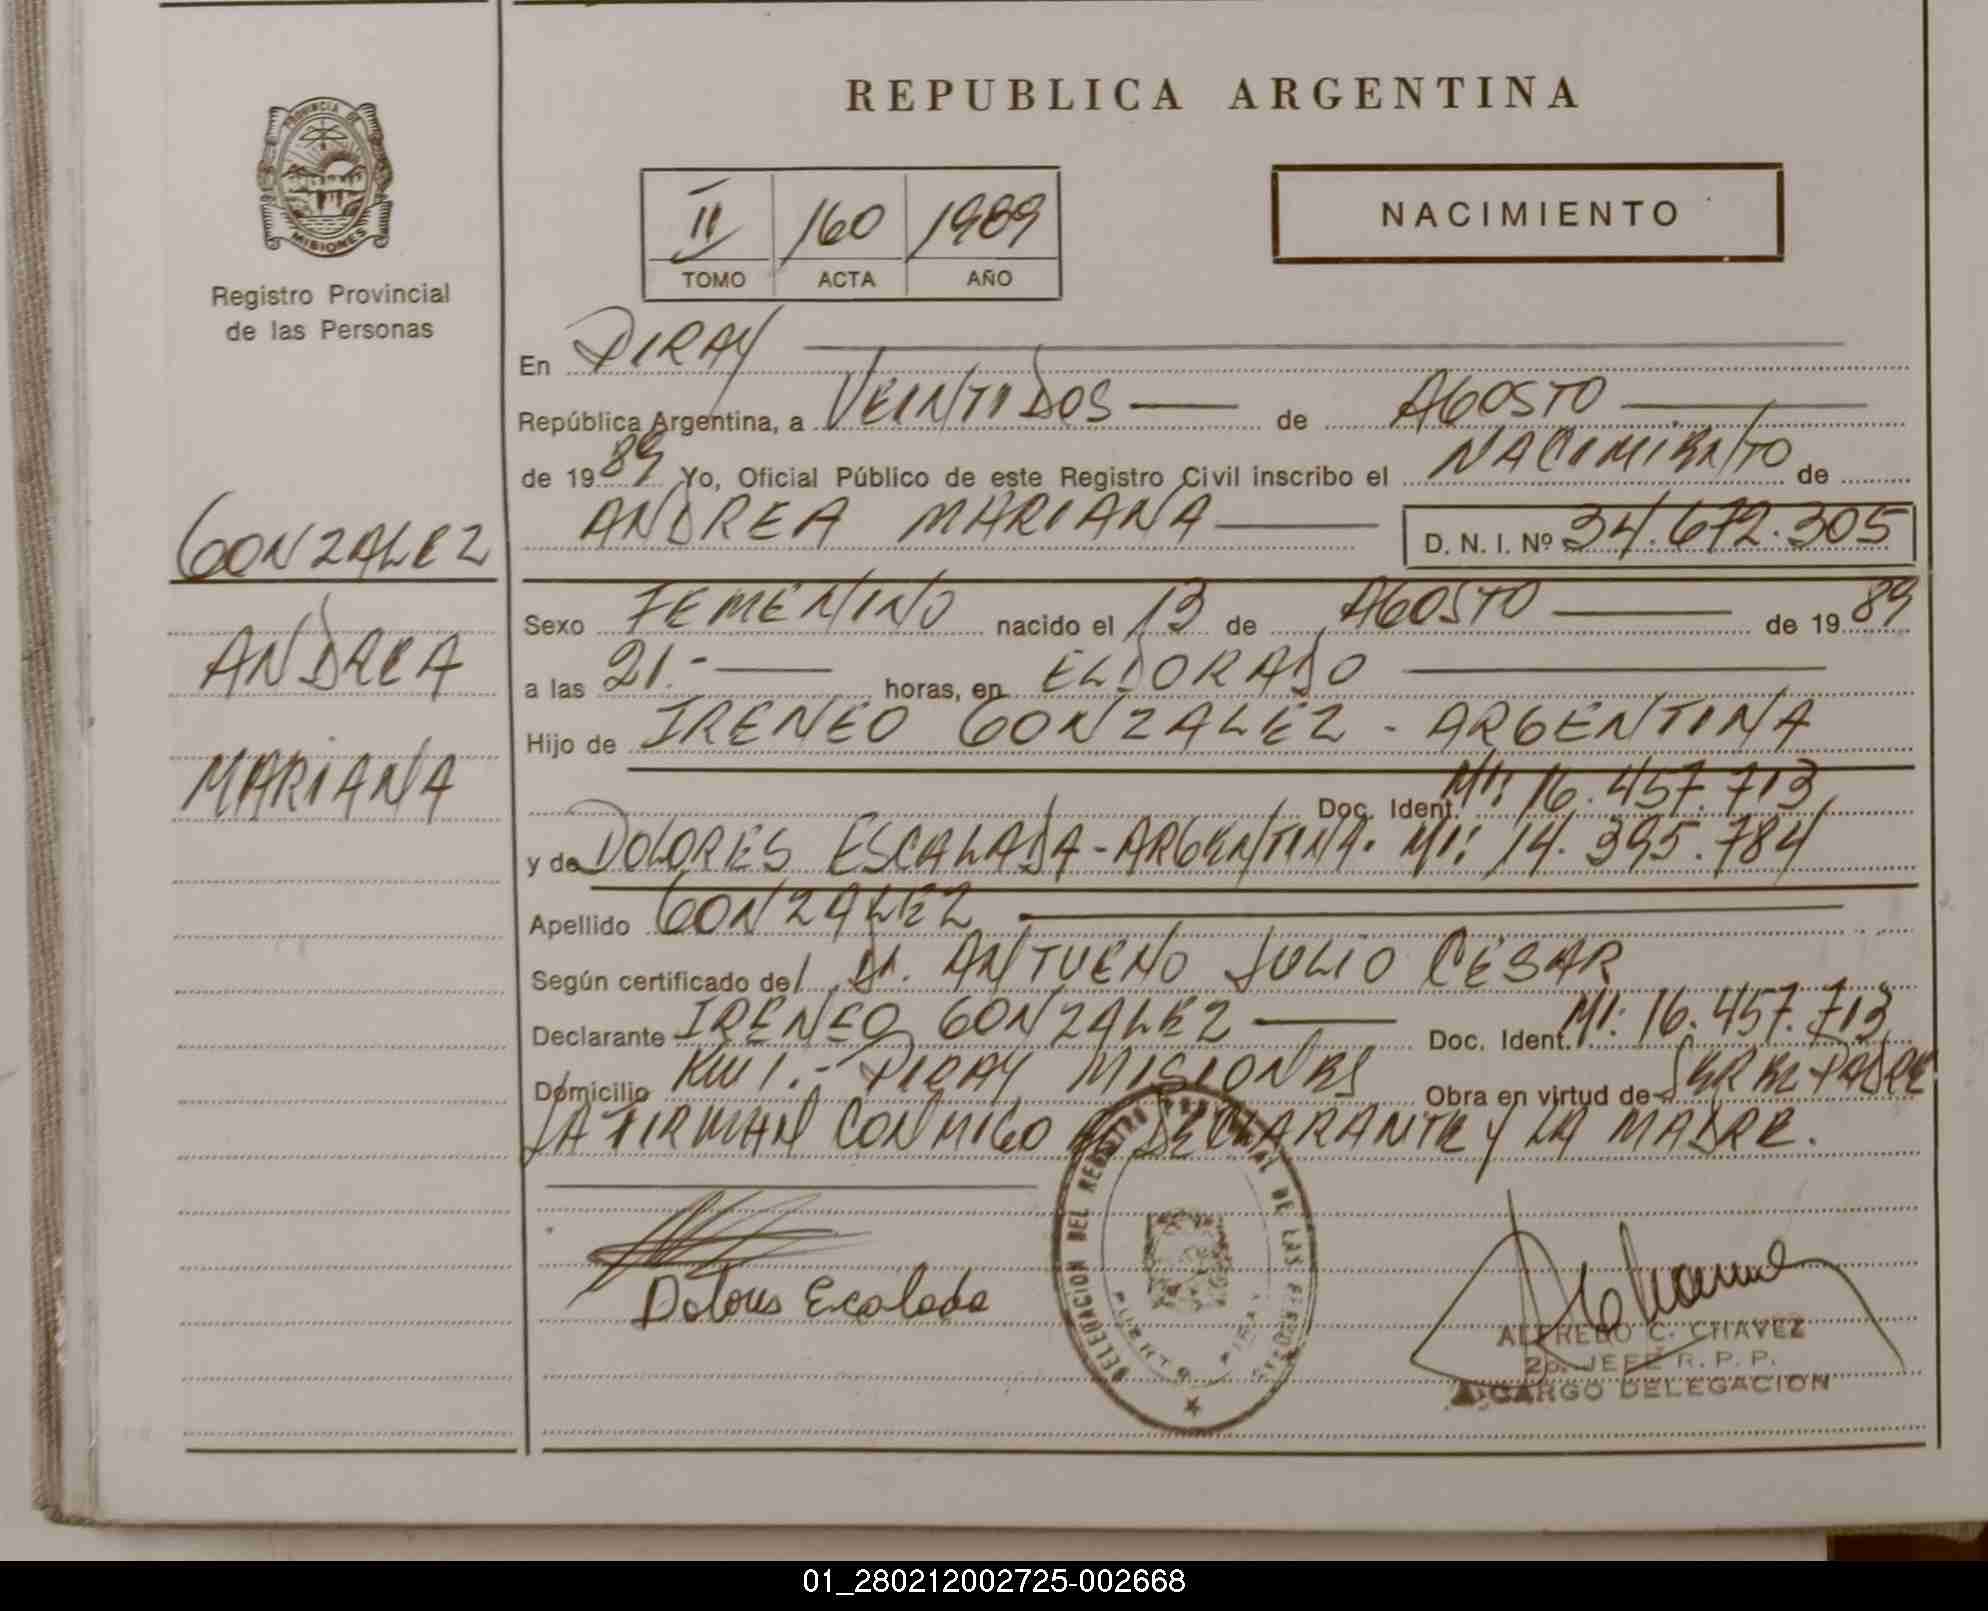 REPUBLICA ARGENTINA
PROVINCIA DE
MISIONES
Registro Provincial
de las Personas
II 160 1989
TOMO ACTA AÑO
NACIMIENTO
En PIRAY
República Argentina, a VEINTIDOS de AGOSTO
de 1989 Yo, Oficial Público de este Registro Civil inscribo el NACIMIENTO de
ANDREA MARIANA D. N. I. Nº 34.672.305
GONZALEZ
ANDREA
MARIANA
Sexo FEMENINO nacido el 13 de AGOSTO de 1989
a las 21.- horas, en ELDORADO
Hijo de IRENEO GONZALEZ - ARGENTINA
Doc. Ident. MI: 16.457.713
y de DOLORES ESCALADA - ARGENTINA. MI: 14.395.784
Apellido GONZALEZ
Según certificado del Dr. ANTUENO JULIO CÉSAR
Declarante IRENEO GONZALEZ Doc. Ident. MI: 16.457.713
Domicilio KM 1.- PIRAY MISIONES Obra en virtud de SER EL PADRE
LA FIRMAN CONMIGO EL DECLARANTE Y LA MADRE.
Dolores Escalada
DELEGACION DEL REGISTRO PROVINCIAL DE LAS PERSONAS
PUERTO PIRAY
ALFREDO C. CHAVEZ
2do. JEFE R. P. P.
A CARGO DELEGACION
01_280212002725-002668